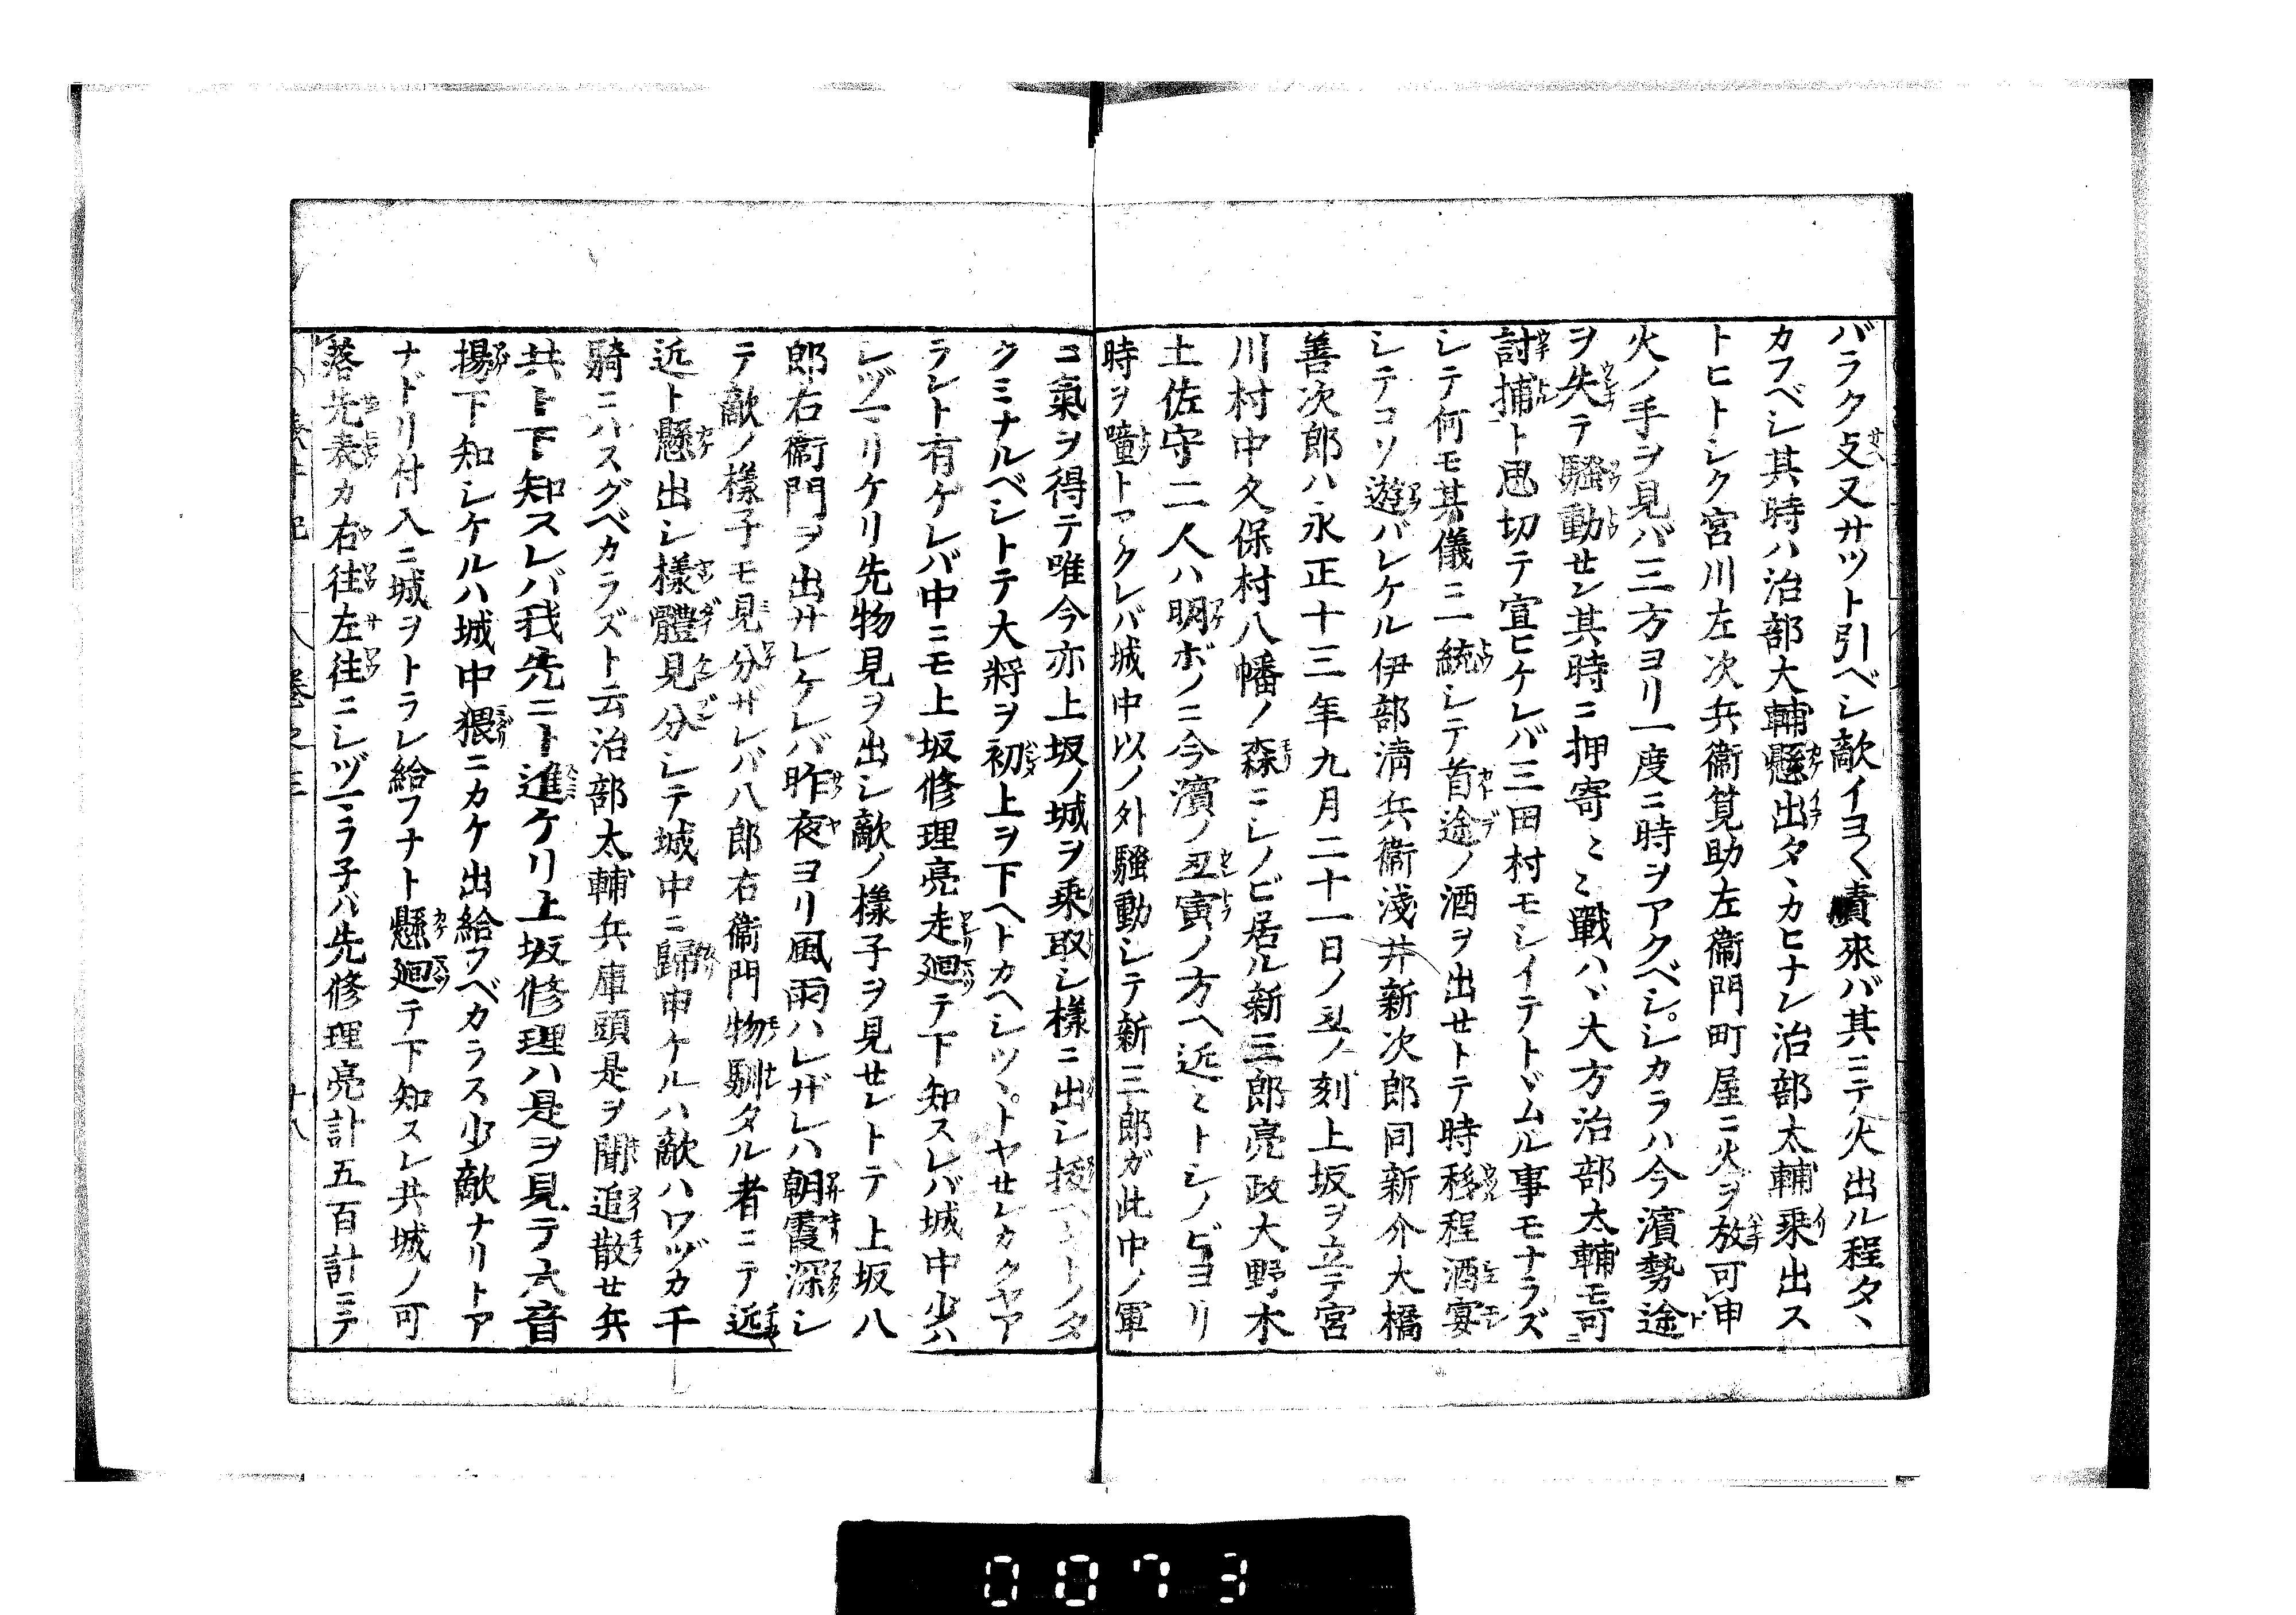 バラク支又サツト引ベシ敵イヨ〱責來バ其ニテ火出ル程タヽ
カフベシ其時ハ治部大輔懸出タヽカヒナレ治部太輔乗出ス
トヒトシク宮川左次兵衞筧助左衞門町屋ニ火ヲ放可申
火ノ手ヲ見バ三方ヨリ一度ニ時ヲアクベシ。シカラハ今濱勢途
ヲ失テ騒動せン其時ニ押寄ミミ戰ハヾ大方治部太輔モ可
討捕ト思切テ宣ヒケレバ三田村モシイテトヾムル事モナラズ
シテ何モ其儀ニ一統シテ首途ノ酒ヲ出せトテ時移程酒宴
シテコソ遊バレケル伊部清兵衞淺井新次郎同新介大橋
善次郎ハ永正十三年九月二十一日ノ丑ノ刻上坂ヲ立テ宮
川村中久保村八幡ノ森ニシノビ居ル新三郎亮政大野木
土佐守二人ハ明ボノニ今濱ノ丑寅ノ方ヘ近ミトシノビヨリ
時ヲ噇トアクレバ城中以ノ外騒動シテ新三郎ガ此中ノ軍
コ氣ヲ得テ唯今亦上坂ノ城ヲ乗取シ様ニ出シ トノタ
クミナルベシトテ大將ヲ初上ヲ下ヘトカヘシツヽ。トヤせンカクヤア
ラント有ケレバ中ニモ上坂修理亮走廻テ下知スレバ城中少ハ
シヅマリケリ先物見ヲ出シ敵ノ様子ヲ見せントテ上坂八
郎右衞門ヲ出サレケレバ昨夜ヨリ風雨ハレザレハ朝霞深シ
テ敵ノ様子モ見分ザレバ八郎右衞門物馴タル者ニテ近
近ト懸出シ様體見分シテ城中ニ歸申ケルハ敵ハワヅカ千
騎ニハスグベカラズト云治部太輔兵庫頭是ヲ聞追散せ兵
共ト下知スレバ我先ニト進ケリ上坂修理ハ是ヲ見テ大音
揚下知シケルハ城中猥ニカケ出給フベカラス少敵ナリトア
ナドリ付入ニ城ヲトラレ給フナト懸廻テ下知スレ共城ノ可
落先表カ右往左往ニシヅマラ子バ先修理亮計五百計ニテ
井記 卷之三 十八
0073